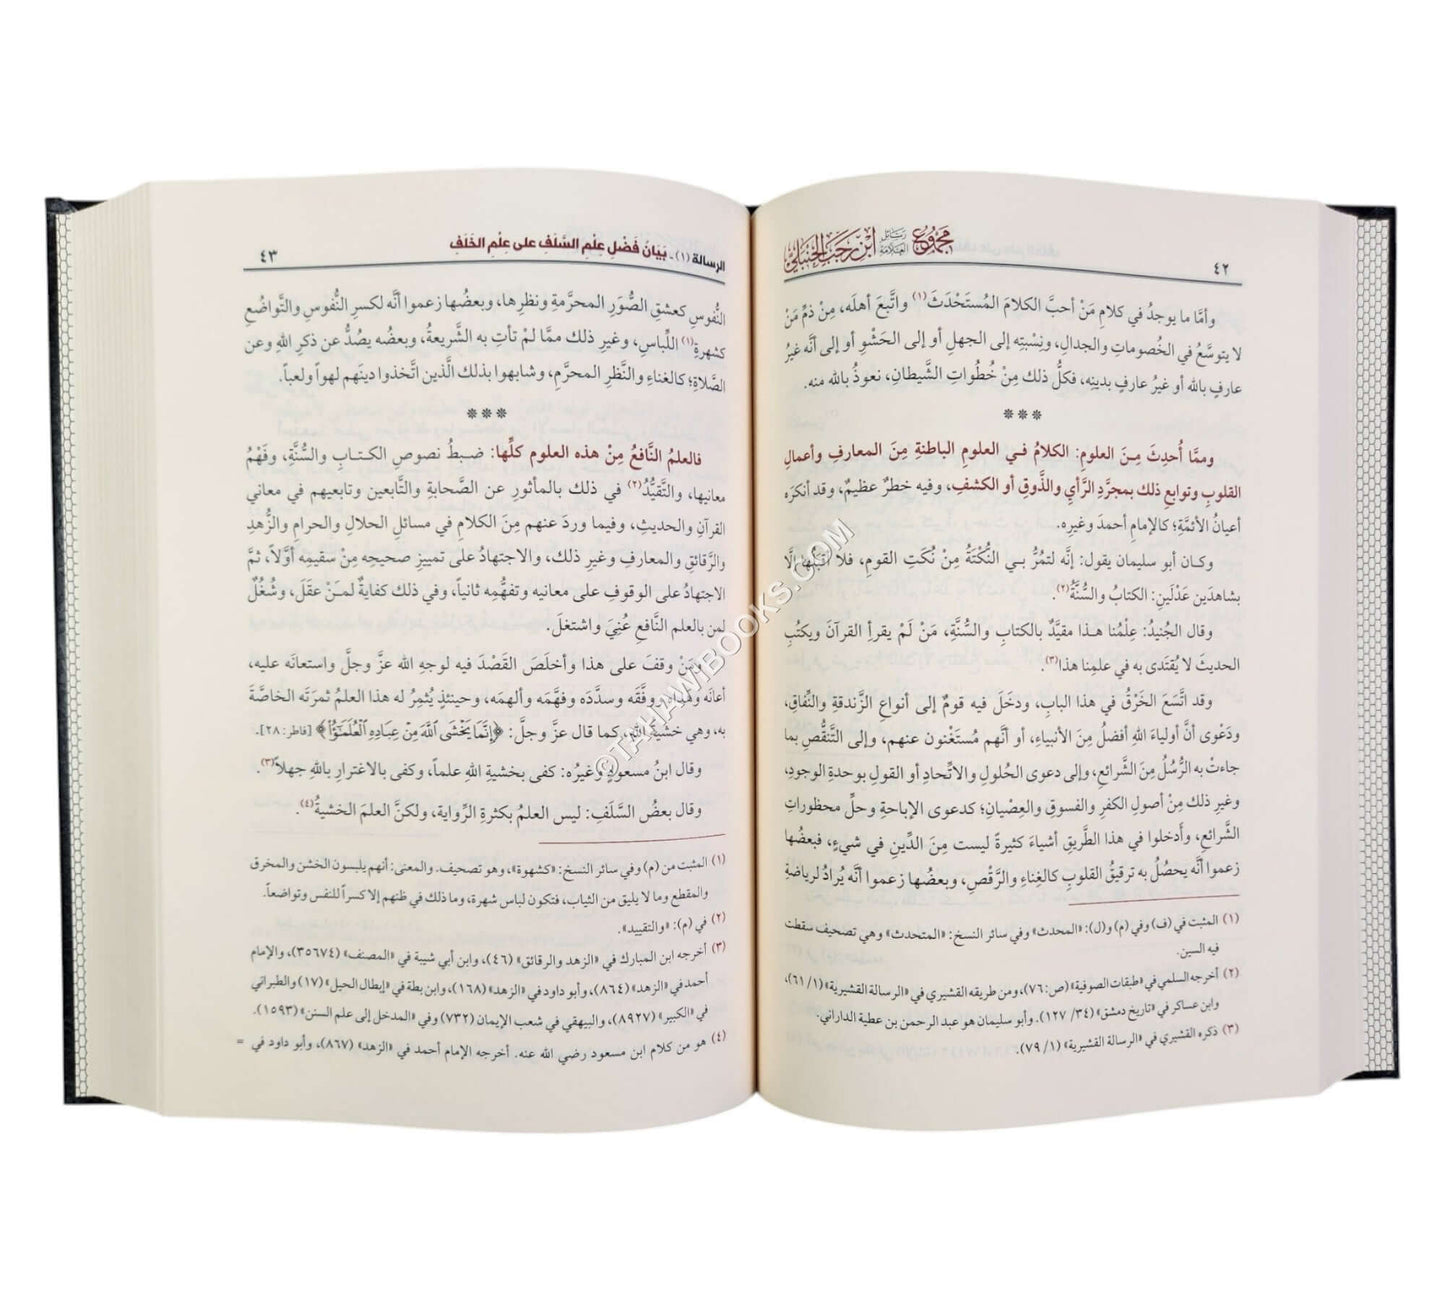 مجموع رسائل العلامة ابن رجب الحنبلي
٤٢
وأمَّا ما يوجدُ في كلامِ مَنْ أحبَّ الكلامَ المُستَحْدَثَ(١) واتَّبعَ أهلَه، مِنْ ذمِّ مَنْ
لا يتوسَّعُ في الخُصوماتِ والجدالِ، ونِسْبتِه إلى الجهلِ أو إلى الحَشْوِ أو إلى أنَّه غيرُ
عارفٍ بالله أو غيرُ عارفٍ بدينِه، فكلُّ ذلك مِنْ خُطُواتِ الشَّيطانِ، نعوذُ بالله منه.
***
وممَّا أُحدِثَ مِنَ العلومِ: الكلامُ في العلومِ الباطنةِ مِنَ المعارفِ وأعمالِ
القلوبِ وتوابعِ ذلك بمجرَّدِ الرَّأيِ والذَّوقِ أو الكشفِ، وفيه خطرٌ عظيمٌ، وقد أنكرَه
أعيانُ الأئمَّةِ؛ كالإمامِ أحمدَ وغيرِه.
وكان أبو سليمان يقول: إنَّه لتمُرُّ بي النُّكْتَةُ مِنْ نُكَتِ القومِ، فلا أقبلُها إلَّا
بشاهدَين عَدْلَينِ: الكتابُ والسُّنَّةُ(٢).
وقال الجُنيدُ: عِلْمُنا هذا مقيَّدٌ بالكتابِ والسُّنَّةِ، مَنْ لَمْ يقرأِ القرآنَ ويكتُبِ
الحديثَ لا يُقتَدى به في علمِنا هذا(٣).
وقد اتَّسَعَ الخَرْقُ في هذا البابِ، ودخَلَ فيه قومٌ إلى أنواعِ الزَّندقةِ والنِّفاقِ،
ودَعْوى أنَّ أولياءَ اللهِ أفضلُ مِنَ الأنبياءِ، أو أنَّهم مُستَغْنون عنهم، وإلى التَّنقُّصِ بما
جاءتْ به الرُّسُلُ مِنَ الشَّرائعِ، وإلى دعوى الحُلولِ والاتِّحادِ أو القولِ بوحدةِ الوجودِ،
وغيرِ ذلك مِنْ أصولِ الكفرِ والفسوقِ والعِصْيانِ؛ كدعوى الإباحةِ وحلِّ محظوراتِ
الشَّرائعِ، وأَدخلوا في هذا الطَّريقِ أشياءَ كثيرةً ليست مِنَ الدِّينِ في شيءٍ، فبعضُها
زعموا أنَّه يحصُلُ به ترقيقُ القلوبِ كالغِناءِ والرَّقْصِ، وبعضُها زعموا أنَّه يُرادُ لرياضةِ
(١) المثبت في (ف) وفي (م) و(ل): «المحدث» وفي سائر النسخ: «المتحدث» وهي تصحيف سقطت
فيه السين.
(٢) أخرجه السلمي في «طبقات الصوفية» (ص: ٧٦)، ومن طريقه القشيري في «الرسالة القشيرية» (١/ ٦١)،
وابن عساكر في «تاريخ دمشق» (٣٤/ ١٢٧). وأبو سليمان هو عبد الرحمن بن عطية الداراني.
(٣) ذكره القشيري في «الرسالة القشيرية» (١/ ٧٩).
الرسالة (١) ـ بَيَانُ فَضْلِ عِلْمِ السَّلَفِ على عِلْمِ الخَلَفِ
٤٣
النُّفوسِ كعشقِ الصُّوَرِ المحرَّمةِ ونظرِها، وبعضُها زعموا أنَّه لكسرِ النُّفوسِ والتَّواضُعِ
كشهرةِ(١) اللِّباسِ، وغيرِ ذلك ممَّا لمْ تأتِ به الشَّريعةُ، وبعضُه يصُدُّ عن ذكرِ اللهِ وعن
الصَّلاةِ؛ كالغناءِ والنَّظرِ المحرَّمِ، وشابهوا بذلك الَّذين اتَّخذوا دينَهم لهواً ولعباً.
***
فالعلمُ النَّافعُ مِنْ هذه العلومِ كلِّها: ضبطُ نصوصِ الكتابِ والسُّنَّةِ، وفَهْمُ
معانيها، والتَّقيُّدُ(٢) في ذلك بالمأثورِ عن الصَّحابةِ والتَّابعين وتابعيهم في معاني
القرآنِ والحديثِ، وفيما وردَ عنهم مِنَ الكلامِ في مسائلِ الحلالِ والحرامِ والزُّهدِ
والرَّقائقِ والمعارفِ وغيرِ ذلك، والاجتهادُ على تمييزِ صحيحِه مِنْ سقيمِه أوَّلاً، ثمَّ
الاجتهادُ على الوقوفِ على معانيه وتفهُّمِه ثانياً، وفي ذلك كفايةٌ لمَنْ عقَلَ، وشُغُلٌ
لمن بالعلمِ النَّافعِ عُنِيَ واشتغلَ.
ومَنْ وقفَ على هذا وأخلَصَ القَصْدَ فيه لوجهِ الله عزَّ وجلَّ واستعانَه عليه،
أعانَه وهداه ووفَّقَه وسدَّدَه وفهَّمَه وألهمَه، وحينئذٍ يُثمِرُ له هذا العلمُ ثمرَتَه الخاصَّةَ
به، وهي خشيةُ اللهِ، كما قال عزَّ وجلَّ: ﴿إِنَّمَا يَخْشَى ٱللَّهَ مِنْ عِبَادِهِ ٱلْعُلَمَٰٓؤُا۟﴾ [فاطر: ٢٨].
وقال ابنُ مسعودٍ وغيرُه: كفى بخشيةِ اللهِ علماً، وكفى بالاغترارِ باللهِ جهلاً(٣).
وقال بعضُ السَّلَفِ: ليس العلمُ بكثرةِ الرِّوايةِ، ولكنَّ العلمَ الخشيةُ(٤).
(١) المثبت من (م) وفي سائر النسخ: «كشهوة»، وهو تصحيف. والمعنى: أنهم يلبسون الخشن والمخرق
والمقطع وما لا يليق من الثياب، فتكون لباس شهرة، وما ذلك في ظنهم إلا كسراً للنفس وتواضعاً.
(٢) في (م): «والتقييد».
(٣) أخرجه ابن المبارك في «الزهد والرقائق» (٤٦)، وابن أبي شيبة في «المصنف» (٣٥٦٧٤)، والإمام
أحمد في «الزهد» (٨٦٤)، وأبو داود في «الزهد» (١٦٨)، وابن بطة في «إبطال الحيل» (١٧) والطبراني
في «الكبير» (٨٩٢٧)، والبيهقي في شعب الإيمان (٧٣٢) وفي «المدخل إلى علم السنن» (١٥٩٣).
(٤) هو من كلام ابن مسعود رضي الله عنه. أخرجه الإمام أحمد في «الزهد» (٨٦٧)، وأبو داود في =
©TAHAWIBOOKS.COM